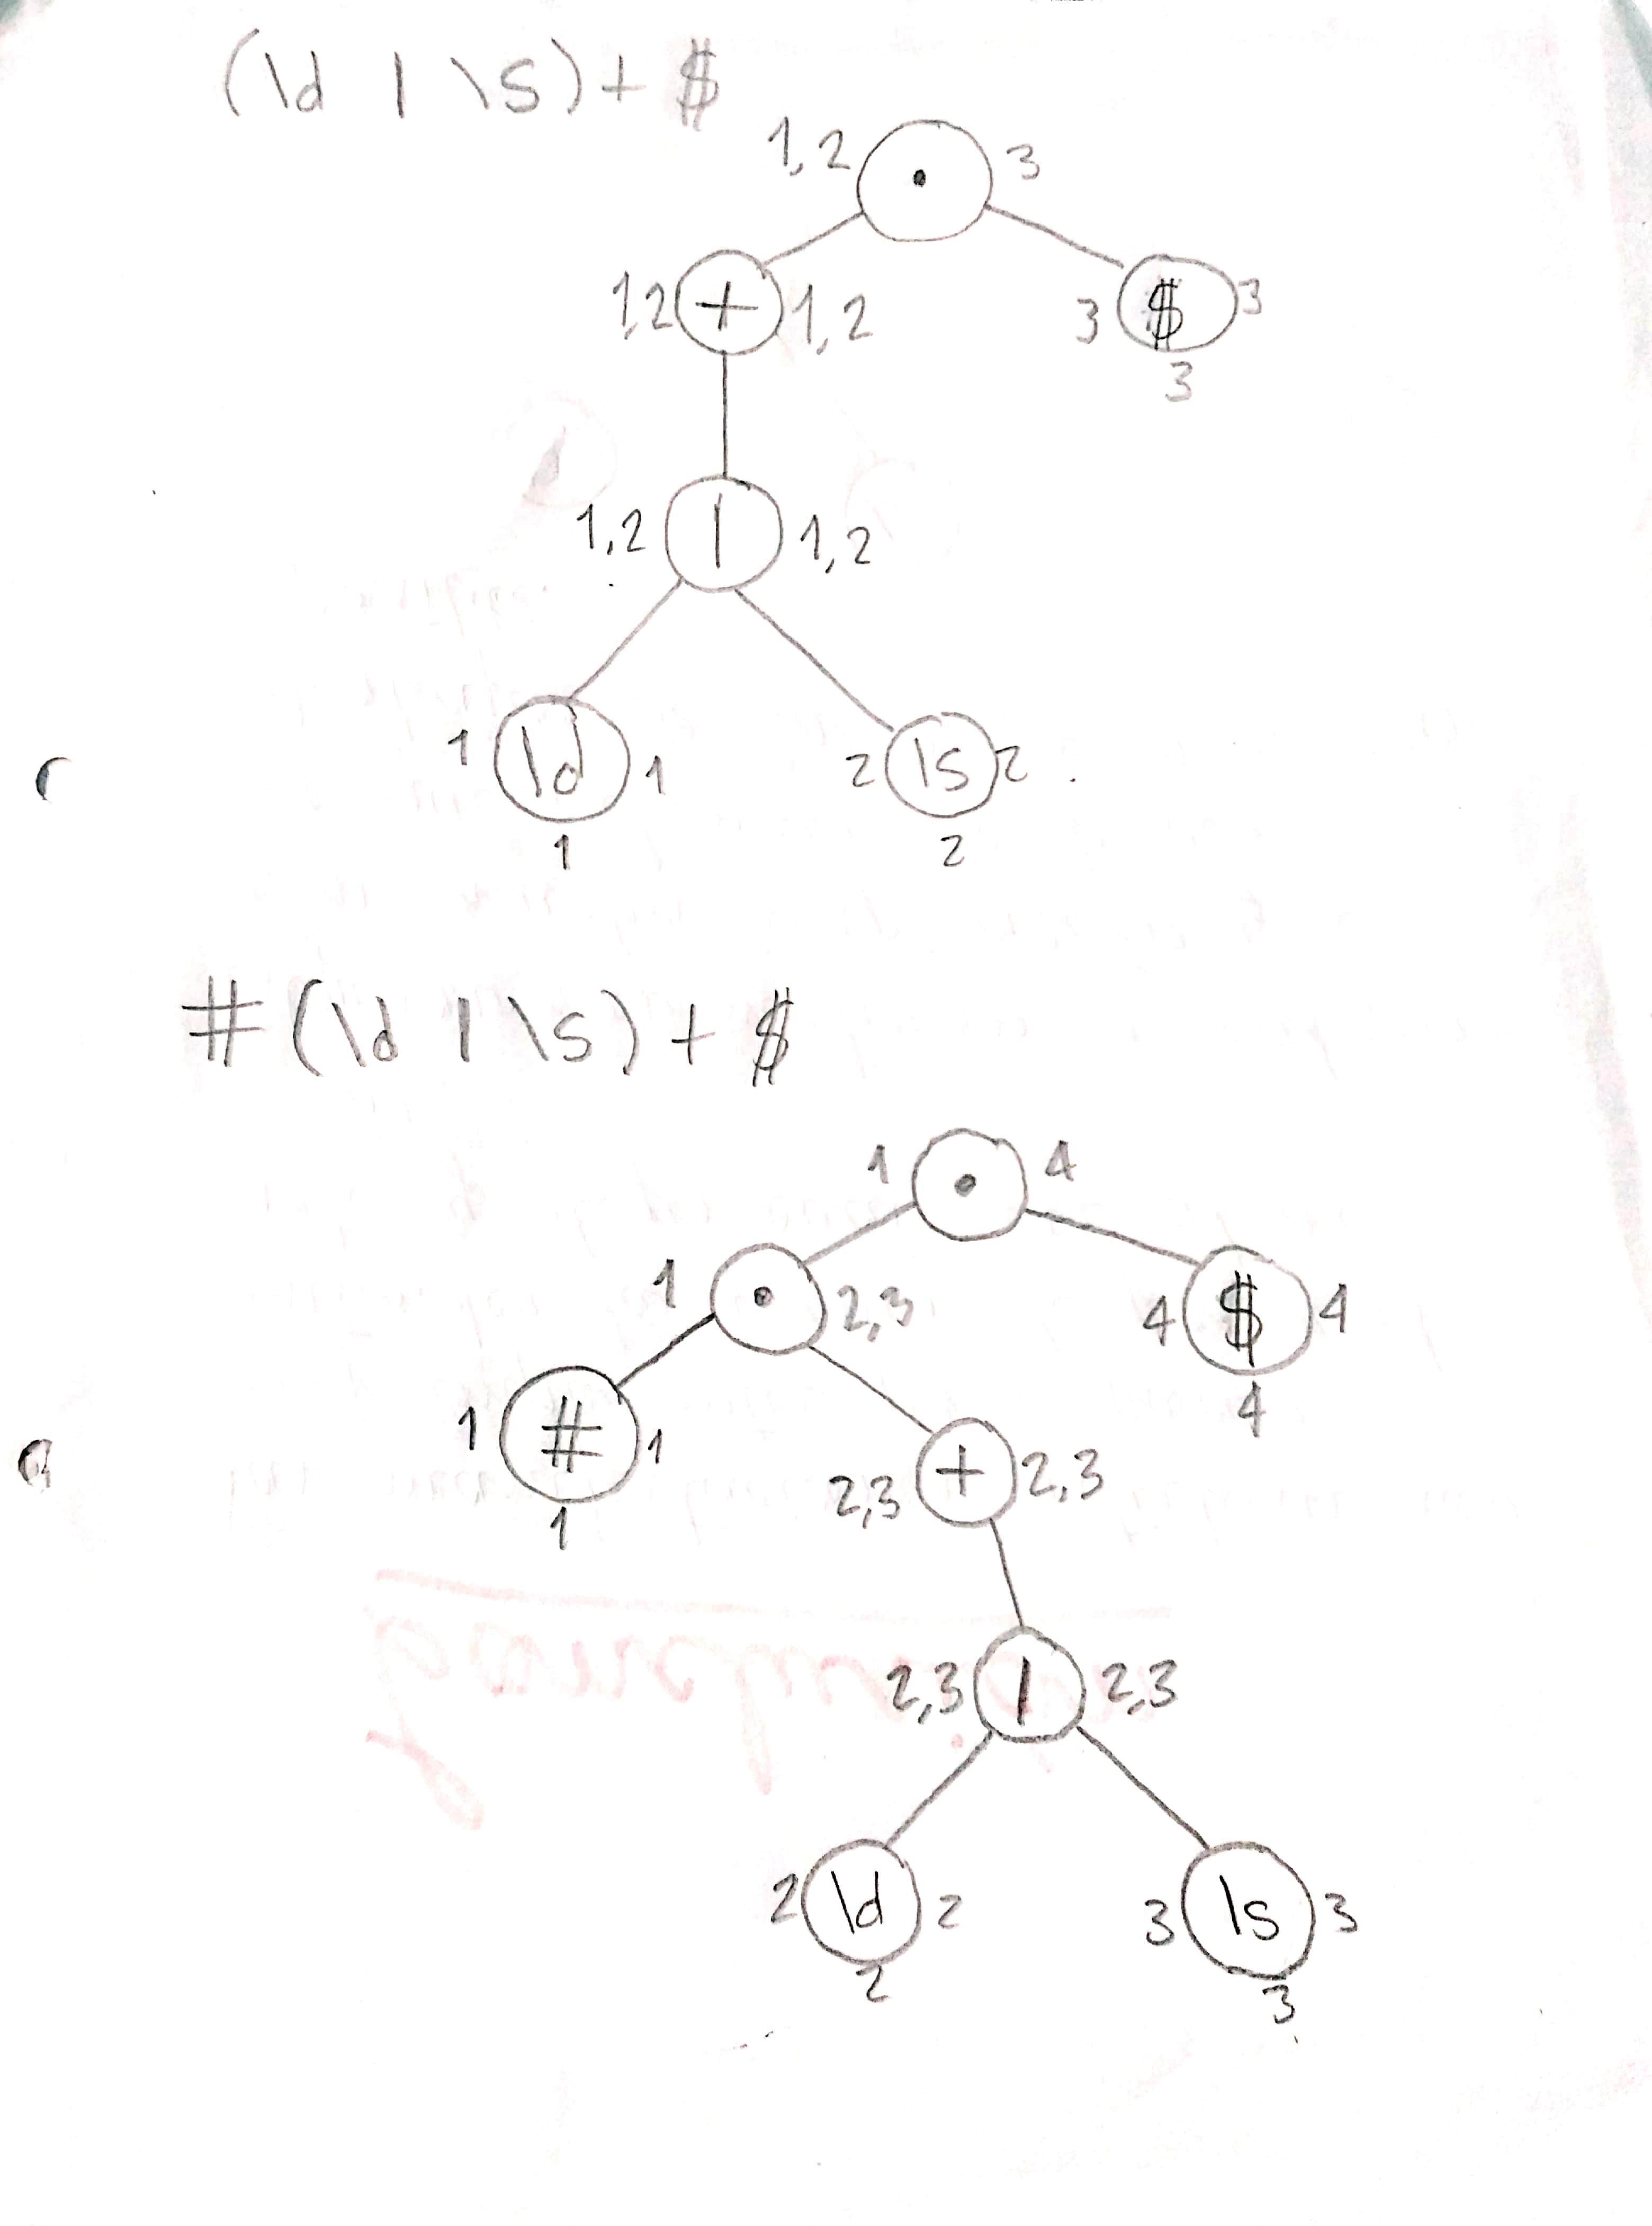 (\d | \s)+ $
1,2 • 3
1,2 + 1,2
3 $ 3
3
1,2 | 1,2
1 \d 1
2 \s 2
1
2
#(\d | \s)+ $
1 • 4
1 • 2,3
4 $ 4
4
1 # 1
1
2,3 + 2,3
2,3 | 2,3
2 \d 2
3 \s 3
2
3